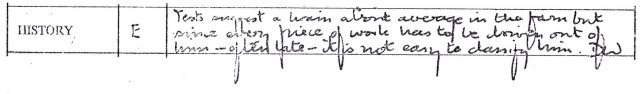 HISTORY E Tests suggest a brain about average in the form but
since every piece of work has to be driven out of
him - often late - it is not easy to classify him.